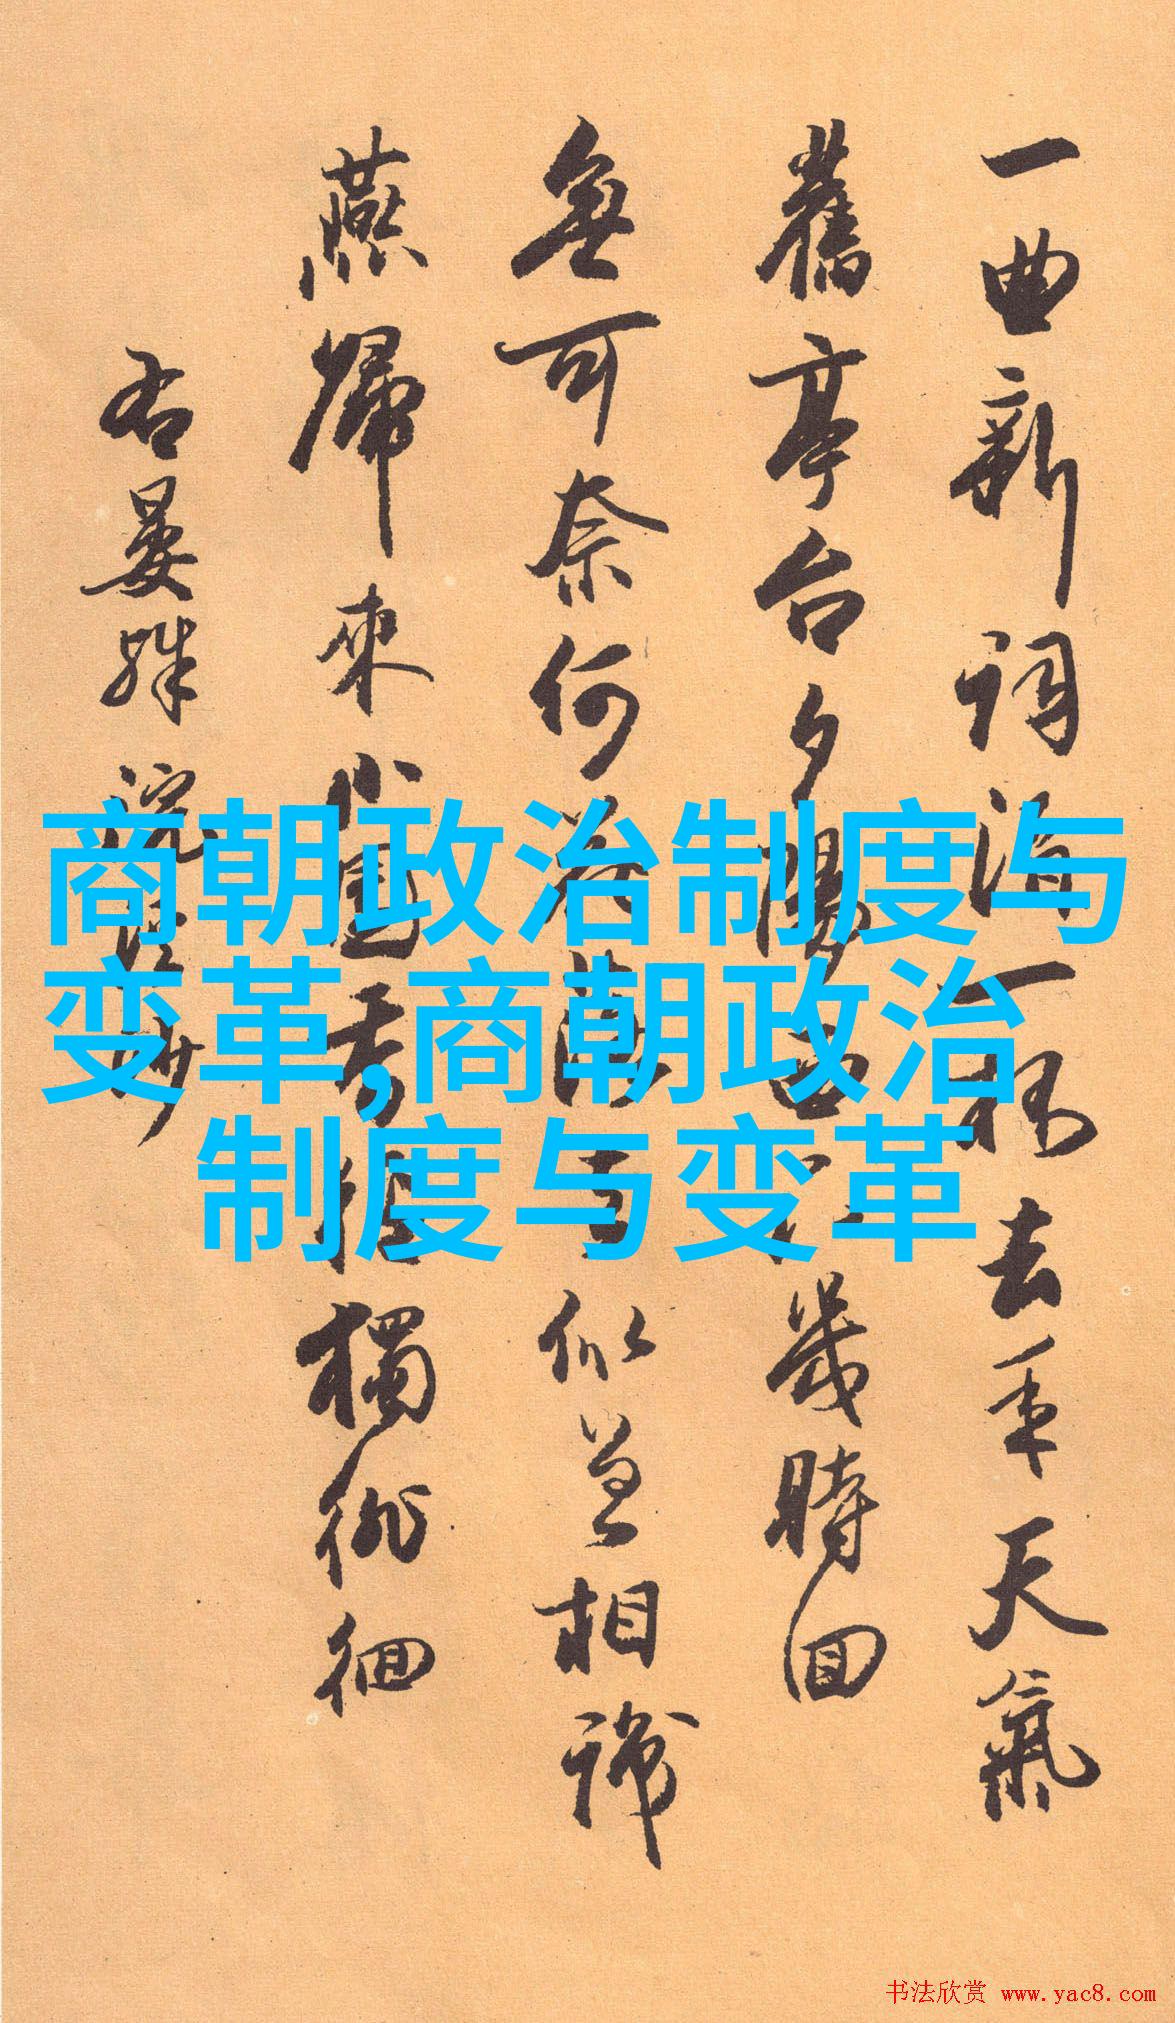 一曲新詞酒一杯去年天氣
舊亭台夕陽西下幾時回
無可奈何花落去似曾相識
燕歸來小園香徑獨徘徊
右晏殊浣溪沙
商朝政治制度与
变革,商朝政治
制度与变革
书法欣赏 www.yac8.com